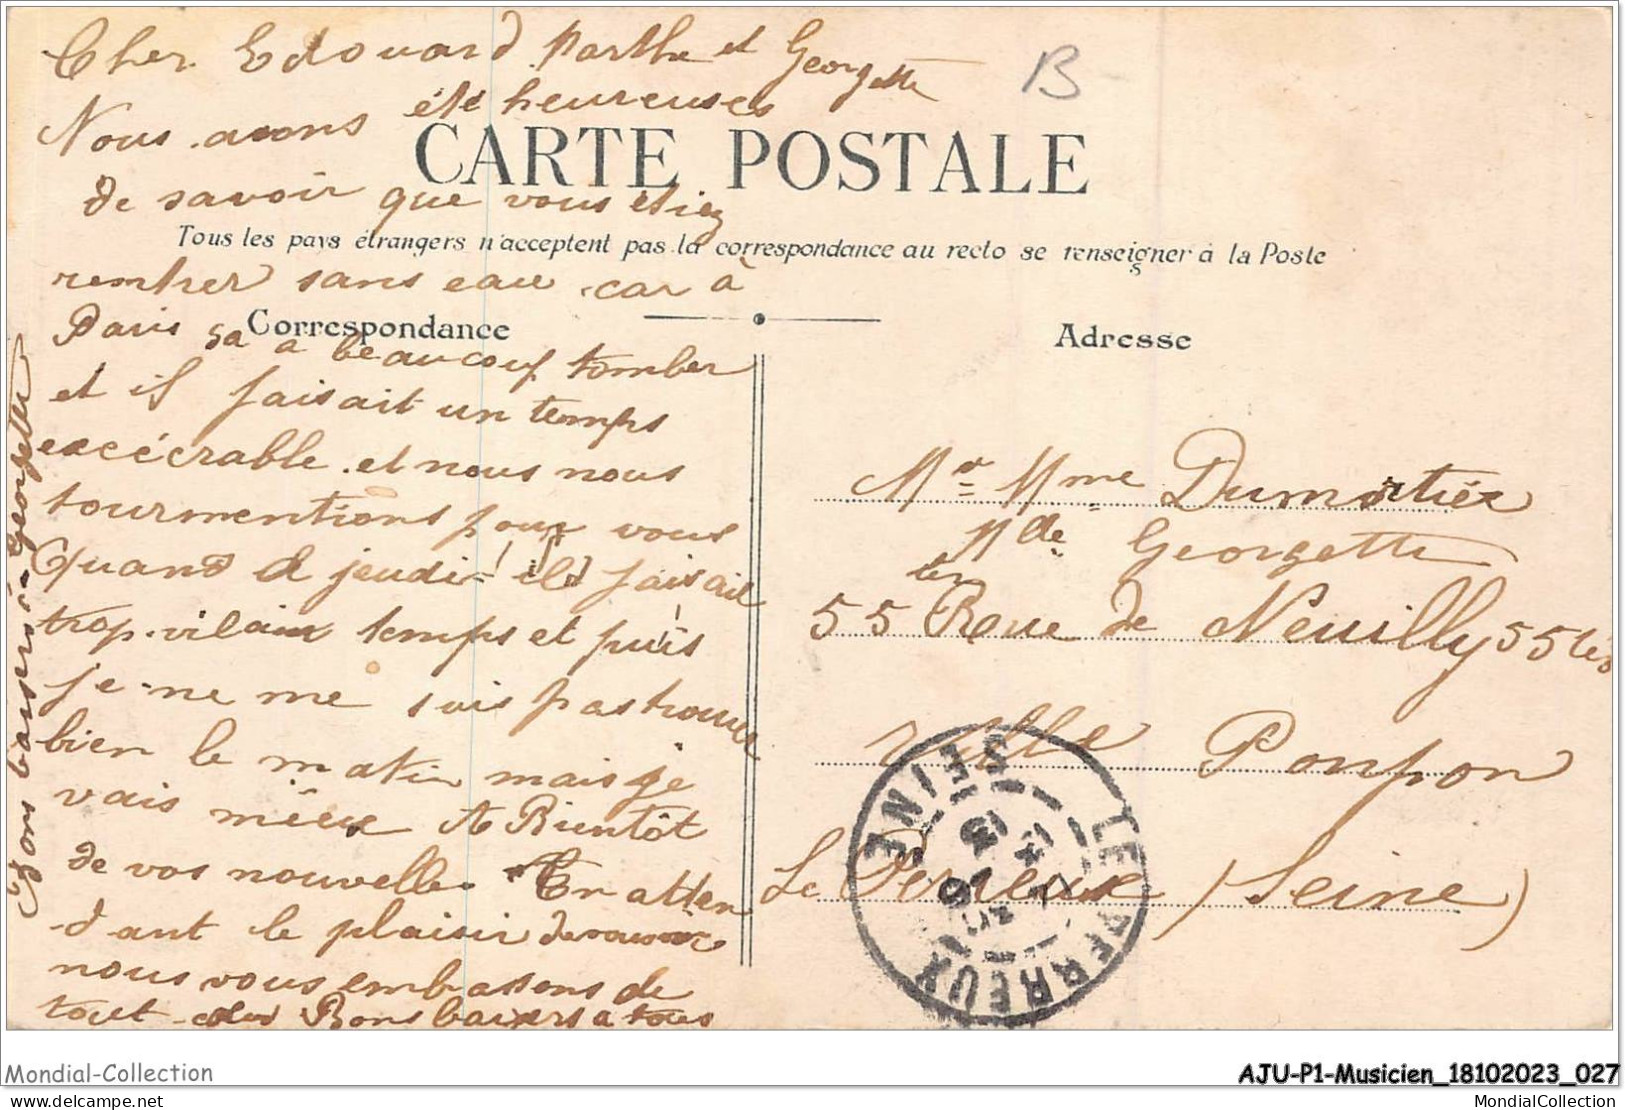 Cher Edouard Marthe et Georgette
B
Nous avons été heureuses
CARTE POSTALE
de savoir que vous étiez
Tous les pays étrangers n'acceptent pas la correspondance au recto se renseigner à la Poste
rentrer sans eau car à
Correspondance
Adresse
Paris sa a beaucoup tomber
et il faisait un temps
excécrable et nous nous
tourmentions pour vous
Quand à jeudi il faisait
trop vilain temps et puis
je ne me suis pas trouvée
bien le matin mais je
vais mieux A Bientôt
de vos nouvelle En atten
dant le plaisir de vous voir
nous vous embrassons de
tout coeur Bons baisers a tous
Bons baisers à Georgette
Mr Mme Dumortier
Mlle Georgette
55 ter Rue de Neuilly 55 ter
villa Pompon
Le Perreux (Seine)
LE PERREUX SEINE
Mondial-Collection
AJU-P1-Musicien_18102023_027
www.delcampe.net
MondialCollection